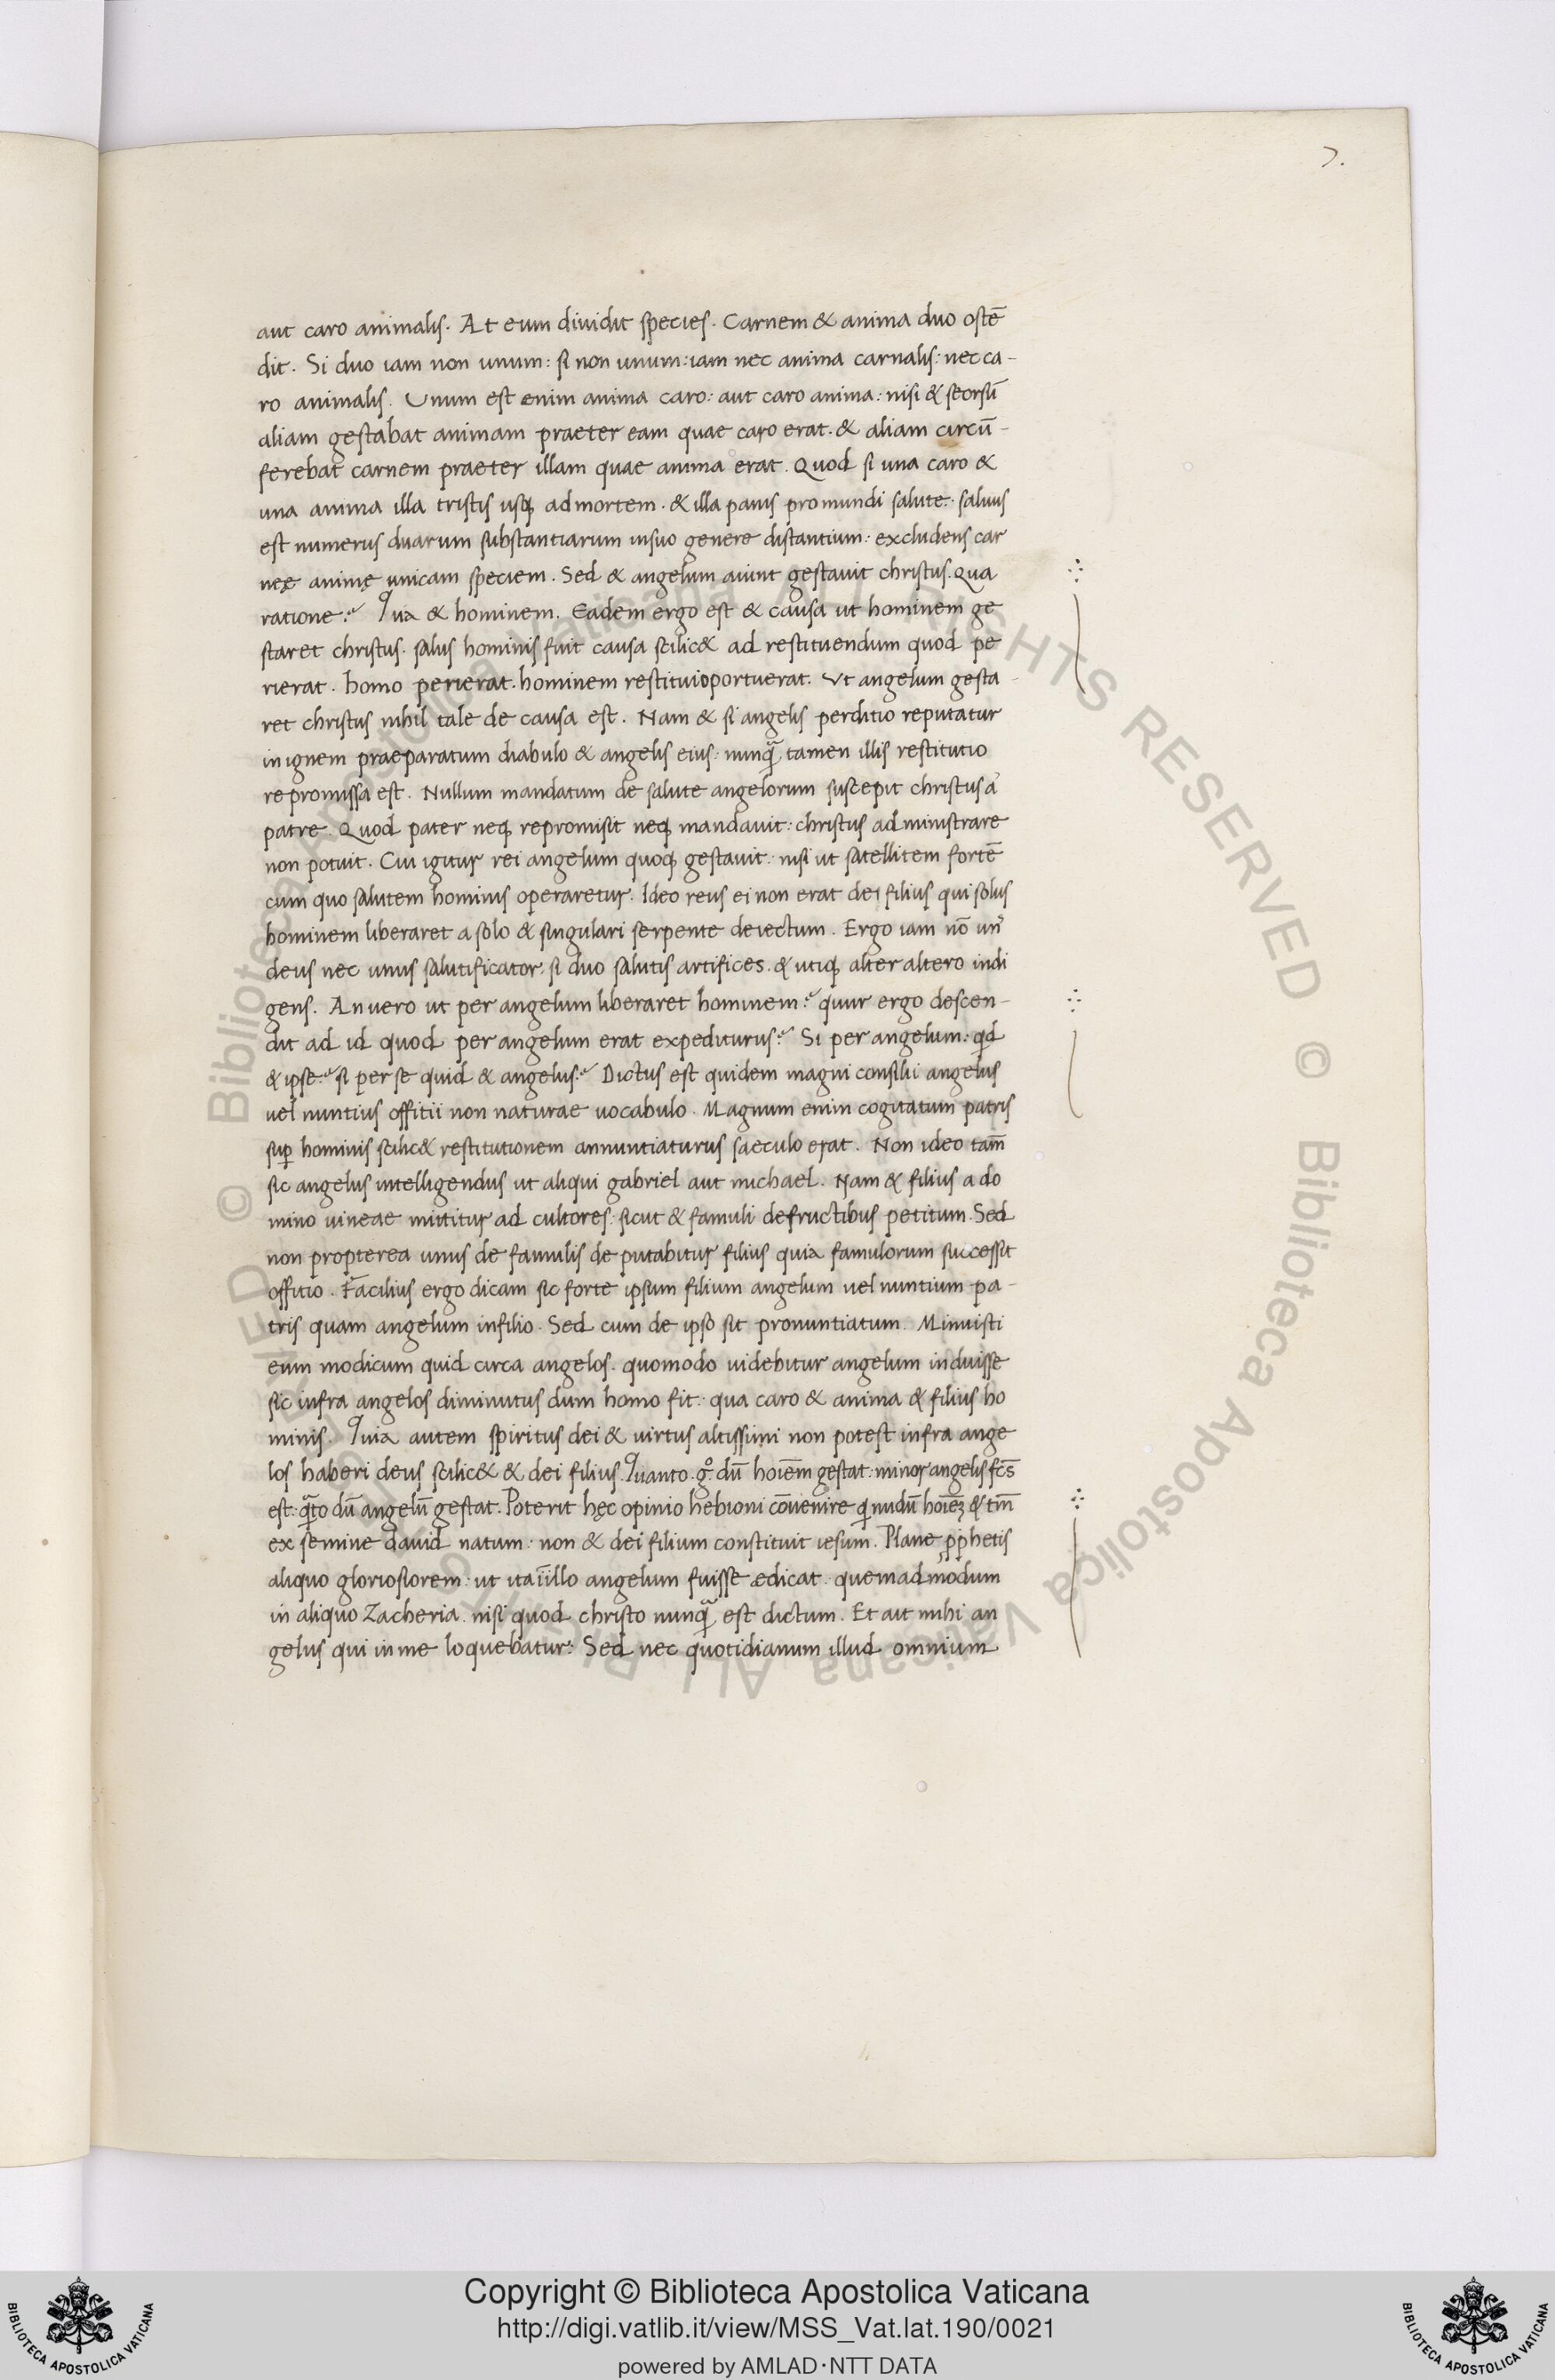 7.
aut caro animalis. At eum diuidit species. Carnem & anima duo ostē
dit. Si duo iam non unum: si non unum: iam nec anima carnalis: nec ca-
ro animalis. Unum est enim anima caro: aut caro anima: nisi & seorsū
aliam gestabat animam praeter eam quae caro erat. & aliam circū-
ferebat carnem praeter illam quae anima erat. Quod si una caro &
una anima illa tristis usq; ad mortem. & illa panis pro mundi salute. saluus
est numerus duarum substantiarum in suo genere distantium: excludens car
neę animę unicam speciem. Sed & angelum aiunt gestauit christus. Qua
ratione? Quia & hominem. Eadem ergo est & causa ut hominem ge
staret christus. salus hominis fuit causa scilic& ad restituendum quod pe
rierat. homo perierat. hominem restitui oportuerat. Ut angelum gesta-
ret christus nihil tale de causa est. Nam & si angelis perditio reputatur
in ignem praeparatum diabulo & angelis eius: nunq̄ tamen illis restitutio
repromissa est. Nullum mandatum de salute angelorum suscepit christus a
patre. Quod pater neq; repromisit neq; mandauit: christus administrare
non potuit. Cui igitur rei angelum quoq; gestauit: nisi ut satellitem fortē
cum quo salutem hominis operaretur. Ideo reus ei non erat dei filius qui solus
hominem liberaret a solo & singulari serpente deiectum. Ergo iam nō un'
deus nec unus salutificator. si duo salutis artifices. & utiq; alter altero indi
gens. An uero ut per angelum liberaret hominem? quur ergo descen-
dit ad id quod per angelum erat expediturus? Si per angelum: qd
& ipse? si per se quid & angelus? Dictus est quidem magni consilii angelus
uel nuntius offitii non naturae uocabulo. Magnum enim cogitatum patris
sup̱ hominis scilic& restitutionem annuntiaturus saeculo erat. Non ideo tam̄
sic angelus intelligendus ut aliqui gabriel aut michael. Nam & filius a do
mino uineae mittitur ad cultores: sicut & famuli de fructibus petitum. Sed
non propterea unus de famulis deputabitur filius quia famulorum successit
offitio. Facilius ergo dicam sic forte ipsum filium angelum uel nuntium pa-
tris quam angelum in filio. Sed cum de ipso sit pronuntiatum. Minuisti
eum modicum quid circa angelos. quomodo uidebitur angelum induisse
sic infra angelos diminutus dum homo fit: qua caro & anima & filius ho
minis. Quia autem spiritus dei & uirtus altissimi non potest infra ange
los haberi deus scilic& & dei filius. Quanto.g° dū hoīem gestat: minor angelis fc̄s
est: q̄to dū angelū gestat. Poterit hęc opinio hebioni cōuenire q nudū hoīeʒ & tm̄
ex semine dauid natum: non & dei filium constituit iesum. Plane pphetis
aliquo gloriosiorem: ut ita ī illo angelum fuisse ędicat: quemadmodum
in aliquo Zacheria. nisi quod christo nunq̄ est dictum. Et ait mihi an
gelus qui in me loquebatur: Sed nec quotidianum illud omnium
© Biblioteca Apostolica Vaticana ALL RIGHTS RESERVED
Copyright © Biblioteca Apostolica Vaticana
http://digi.vatlib.it/view/MSS_Vat.lat.190/0021
powered by AMLAD·NTT DATA
BIBLIOTECA APOSTOLICA VATICANA
BIBLIOTECA APOSTOLICA VATICANA